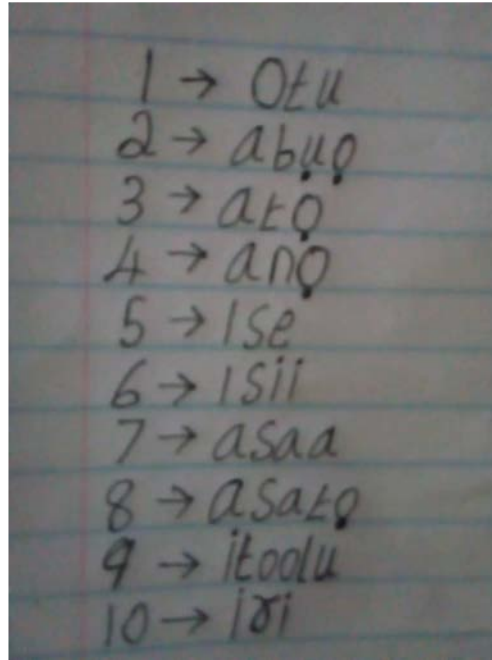 1 → Otu
2 → abụọ
3 → atọ
4 → anọ
5 → Ise
6 → Isii
7 → asaa
8 → asatọ
9 → itoolu
10 → iri